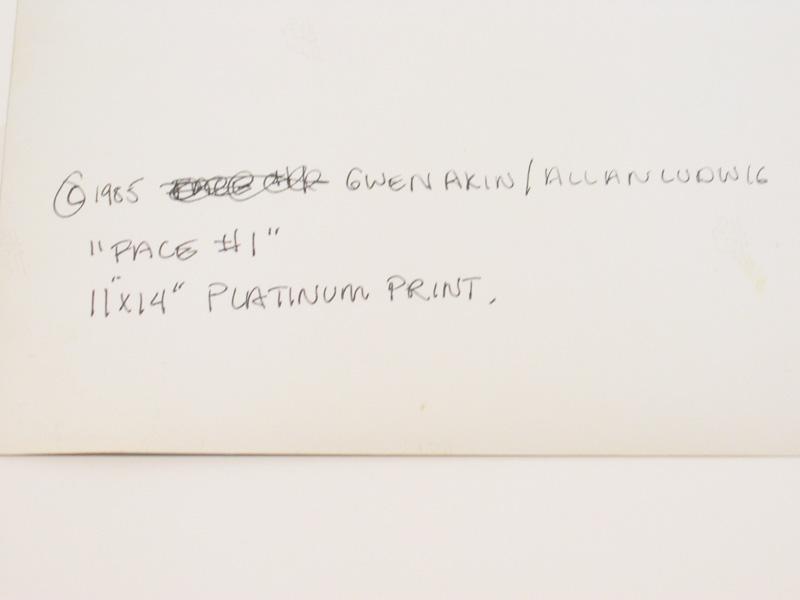 © 1985 GWEN AKIN / ALLAN LUDWIG
"FACE #1"
11"x14" PLATINUM PRINT.